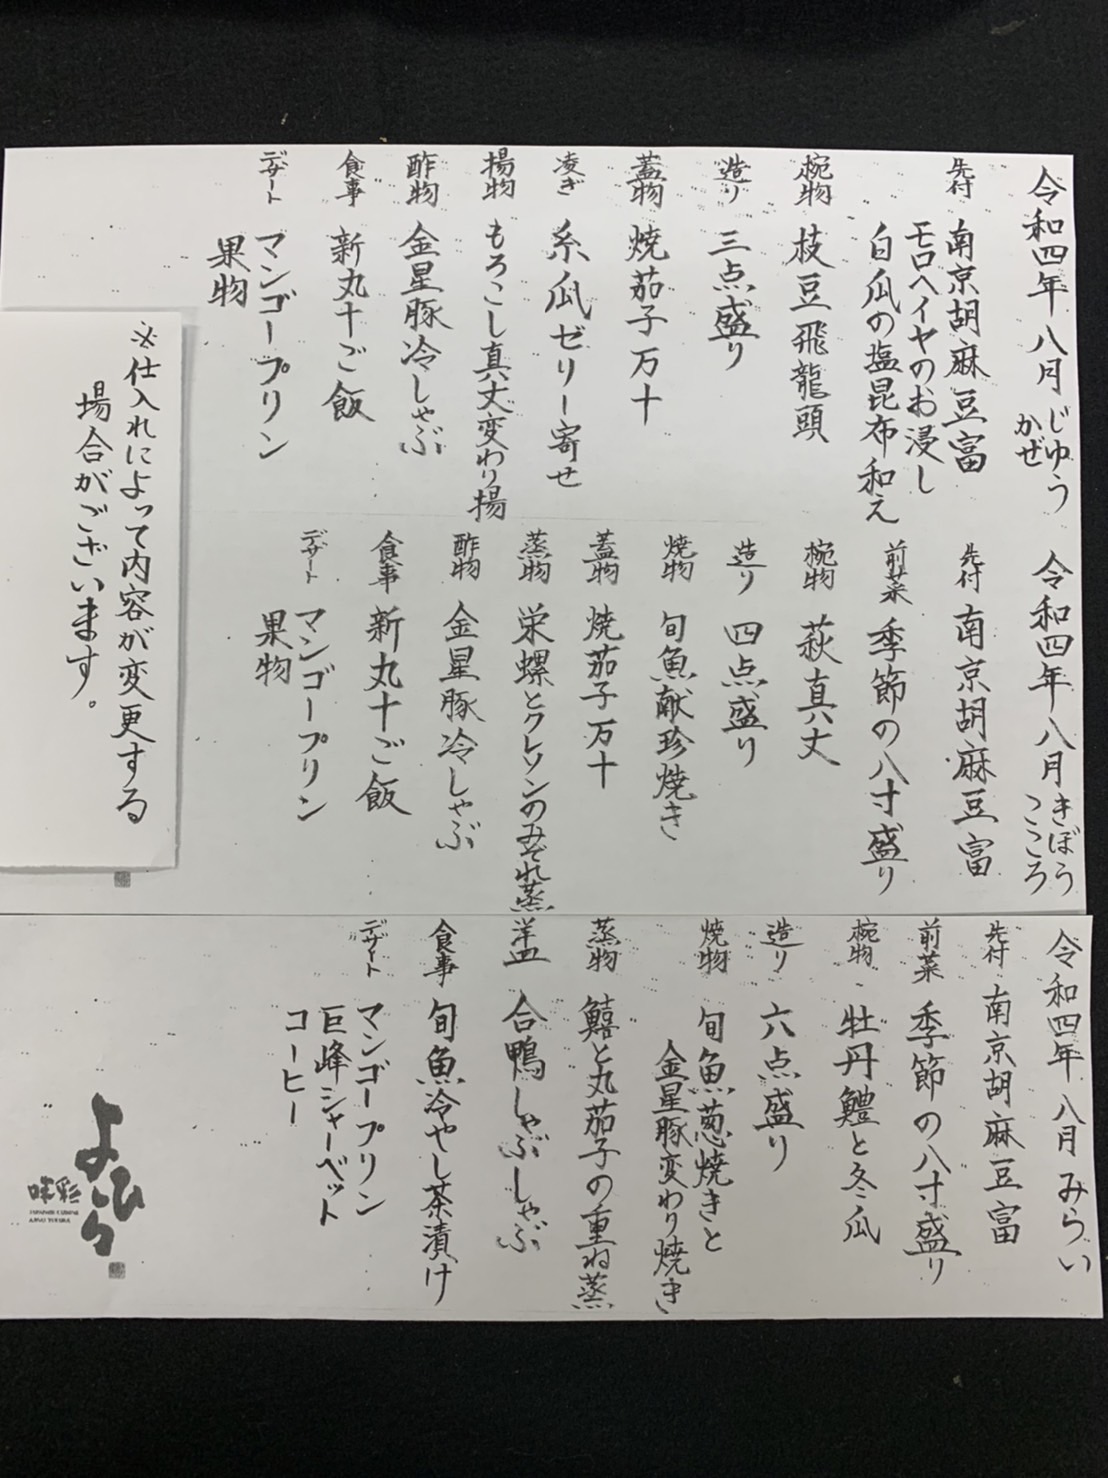 令和四年 八月 じゆうかぜ
先付 南京胡麻豆富
モロヘイヤのお浸し
白瓜の塩昆布和え
椀物 枝豆飛龍頭
造り 三点盛り
蓋物 焼茄子万十
凌ぎ 糸瓜ゼリー寄せ
揚物 もろこし真丈変わり揚
酢物 金星豚冷しゃぶ
食事 新丸十ご飯
デザート マンゴープリン
果物
令和四年 八月 きぼうこころ
先付 南京胡麻豆富
前菜 季節の八寸盛り
椀物 萩真丈
造り 四点盛り
焼物 旬魚献珍焼き
蓋物 焼茄子万十
蒸物 栄螺とクレソンのみぞれ蒸
酢物 金星豚冷しゃぶ
食事 新丸十ご飯
デザート マンゴープリン
果物
※仕入れによって内容が変更する
場合がございます。
令和四年 八月 みらい
先付 南京胡麻豆富
前菜 季節の八寸盛り
椀物 牡丹鱧と冬瓜
造り 六点盛り
焼物 旬魚葱焼きと
金星豚変わり焼き
蒸物 鱚と丸茄子の重ね蒸
洋皿 合鴨しゃぶしゃぶ
食事 旬魚冷やし茶漬け
デザート マンゴープリン
巨峰シャーベット
コーヒー
味彩